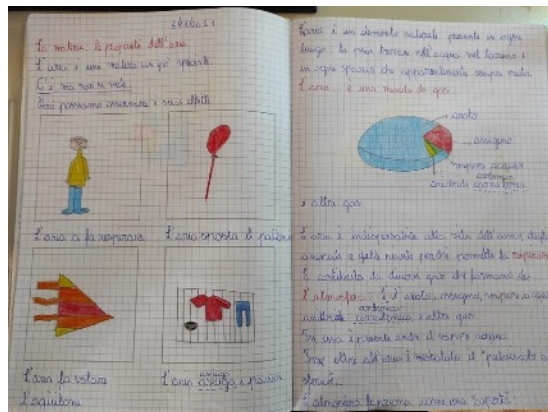 La materia: le proprietà dell'aria
L'aria è una materia un po' speciale.
C'è ma non si vede.
Però possiamo osservare i suoi effetti
L'aria ci fa respirare
L'aria sposta il pallone
L'aria fa volare
l'aquilone
asciuga
L'aria asciuga i panni
L'aria è un elemento naturale presente in ogni
luogo: la puoi trovare nell'acqua nel terreno e
in ogni spazio che apparentemente sempre vuoto.
L'aria è una miscela di gas
azoto
ossigeno
vapore acqueo
carbonica
anidride
e altri gas
L'aria è indispensabile alla vita dell'uomo, degli
animali e delle piante perché permette la respirazione
È costituita da diversi gas che formano
l'atmosfera: azoto, ossigeno, vapore
anidride carbonica e altri gas.
In essa è presente anche il vapore acqueo
oltre all'aria è mescolato il "pulviscolo
L'atmosfera funziona come una "coperta"